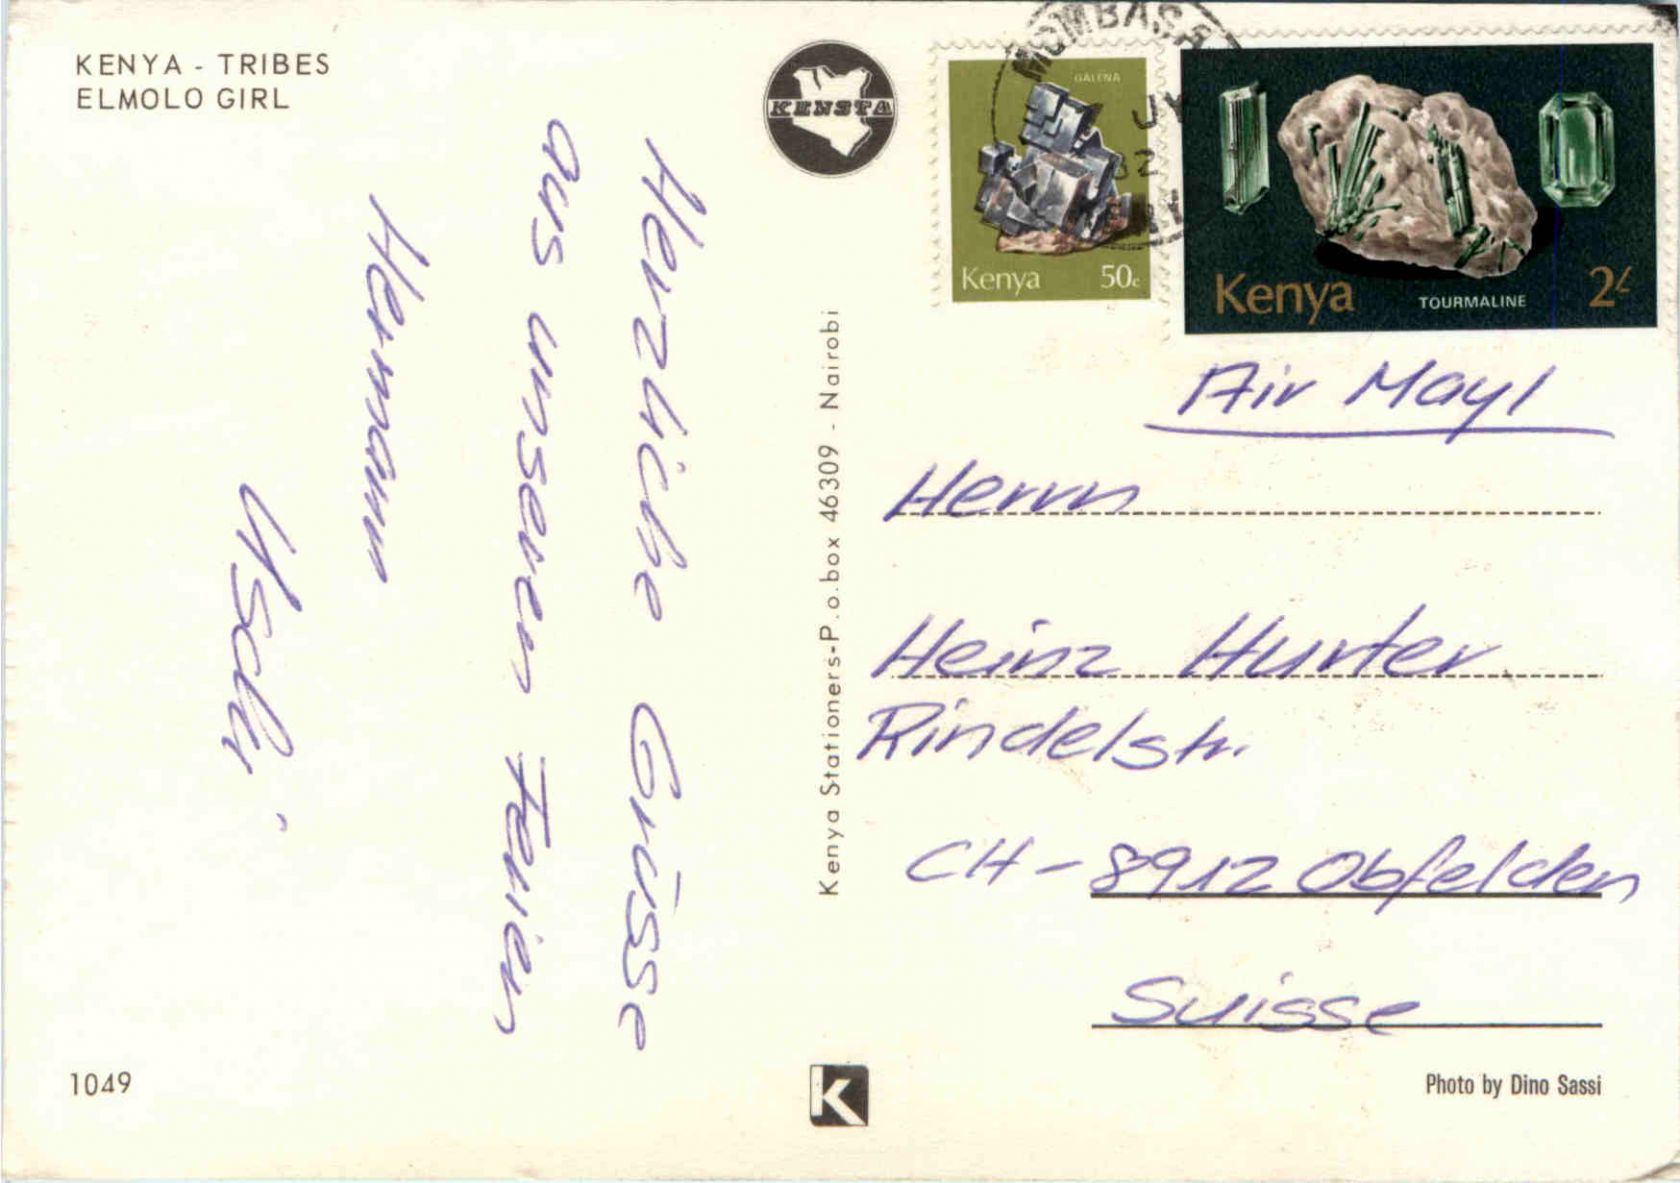 KENYA - TRIBES
ELMOLO GIRL
KENSTA
Herzliche Grüsse
aus unseren Ferien
Hermann
Uschi.
1049
Kenya Stationers-P.o.box 46309 - Nairobi
K
MOMBASA
JY
82
GALENA
Kenya 50c
Kenya TOURMALINE 2/-
Air Mayl
Herrn
Heinz Hurter
Rindelstr.
CH-8912 Obfelden
Suisse
Photo by Dino Sassi